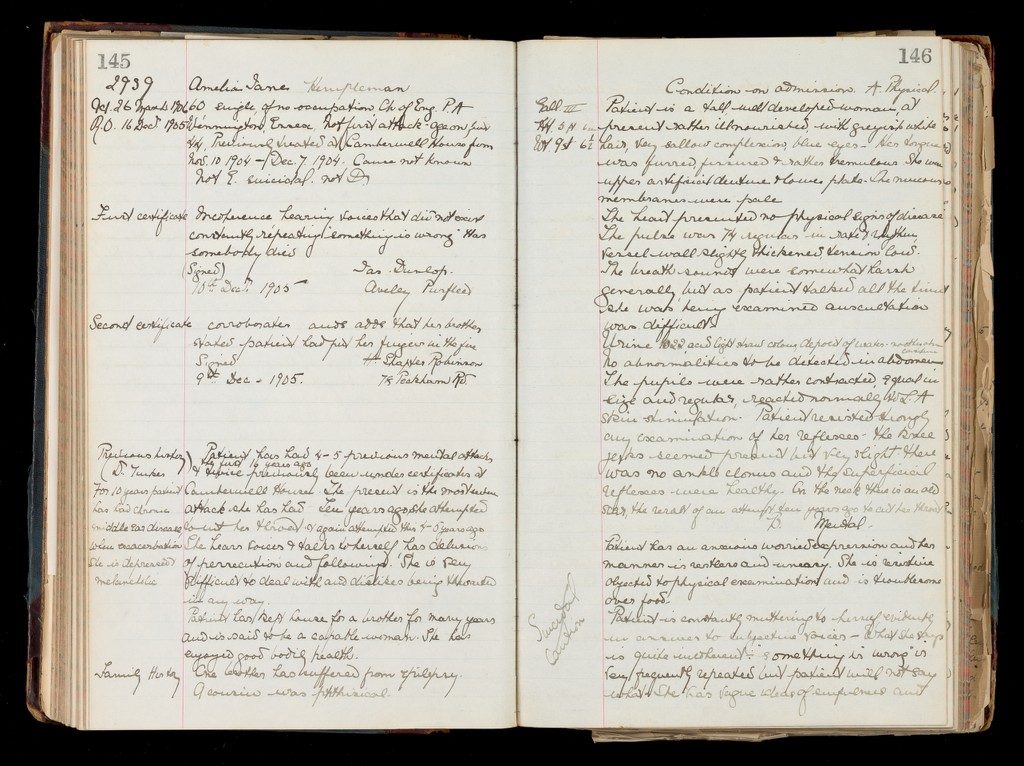 145
2939 Amelia Jane Hempleman
60 single of no occupation Ch. of Eng. P A
R.O. 16 Dec 1905 Wennington, Essex. Not first attack - age on first
44, Previously treated at Camberwell House from
Nov. 10 1904 - Dec. 7. 1904. Cause not known
Not E. suicidal. not D
First certificate Incoherence hearing voices that did not exist
constantly repeating "something is wrong" Has
somebody died
(Signed) Jas. Dunlop.
10th Dec. 1905 Aveley Purfleet
Second certificate corroborates and adds that her brother
stated patient had put her fingers in the fire
Signed H. Shapter Robinson
9th Dec - 1905. 78 Peckham Rd
Previous history Patient has had 4-5 previous mental attacks
the first 16 years ago
(D. Turner) & twice previously been under certificates at
For 10 years patient Camberwell House. The present is the most severe
has had chronic attack she has had. Ten years ago she attempted
middle ear disease to cut her throat & again attempted this 4-5 years ago
when exacerbation She hears voices & talks to herself, has delusions
She is depressed of persecution and followings. She is very
melancholic difficult to deal with and dislikes being thwarted
in any way.
Patient has kept house for a brother for many years
and is said to be a capable woman. She has
enjoyed good bodily health.
Family History One brother has suffered from epilepsy.
A cousin was phthisical.
146
Condition on admission. A Physical.
Patient is a tall well developed woman, at
present rather ill nourished, with greyish white
Wt 9st 6½ hair, very sallow complexion, blue eyes - Her tongue
was furred, fissured & rather tremulous. She wears
upper artificial denture & lower plate. The mucous
membranes were pale
The heart presented no physical signs of disease
The pulse was 74 regular in rate & rhythm,
vessel wall slightly thickened, tension low.
The breath sounds were somewhat harsh
generally, but as patient talked all the time
she was being examined auscultation
was difficult.
Urine 1022, acid light straw colour, deposit of urates
No abnormalities to be detected in abdomen
The pupils were rather contracted, equal in
size and regular, reacted normally to L. A
skin stimulation. Patient resisted strongly
any examination of her reflexes - the knee
jerks seemed present but very slight. there
was no ankle clonus and the superficial
reflexes were healthy. On the neck there is an old
scar, the result of an attempt ten years ago to cut her throat
B. Mental.
Patient has an anxious worried expression and her
manner is restless and uneasy. She is resistive
objected to physical examination and is troublesome
over food.
Suicidal
Caution
Patient is constantly muttering to herself evidently
in answer to subjective voices - what she says
is quite incoherent: "something is wrong" is
very frequently repeated but patient will not say
what. She has vague ideas of influence and